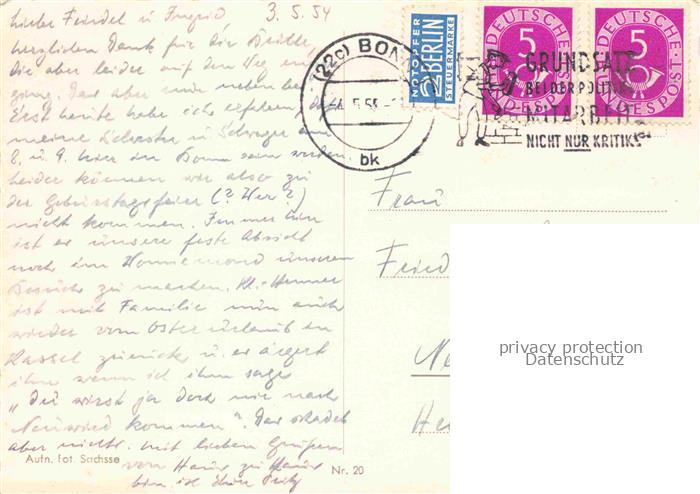 Lieber Friedel u Ingrid 3.5.54
herzlichen Dank für die Bitte,
die aber leider auf dem Weg
ging. Das aber nur neben bei
Erst heute habe ich erfahren, daß
meine Schwester u Schwager am
8. u 9. hier in Bonn sein werden
leider können wir also zu
der Geburtstagsfeier (? Wer?)
nicht kommen. Immer hin
ist es unsere feste Absicht
noch im Wonnemond unseren
Besuch zu machen. Kl.-
ist mit Familie nun auch
wieder vom Osterurlaub in
Kassel zurück u. er ärgert
ihn wenn ich ihm sage
„Du wirst ja doch nie nach
Neuwied kommen". Das schadet
aber nichts. Mit lieben Grüßen
von Haus zu Haus
bin ich Euer
Aufn. Fot. Sachsse
Nr. 20
(22c) BONN
4.5.54
bk
NOTOPFER
2 BERLIN
STEUERMARKE
DEUTSCHE BUNDESPOST
5
DEUTSCHE BUNDESPOST
5
GRUNDSATZ
BEI DER POLIT
MITARBEIT
NICHT NUR KRITIK
Frau
Fried
Ne
He
privacy protection
Datenschutz